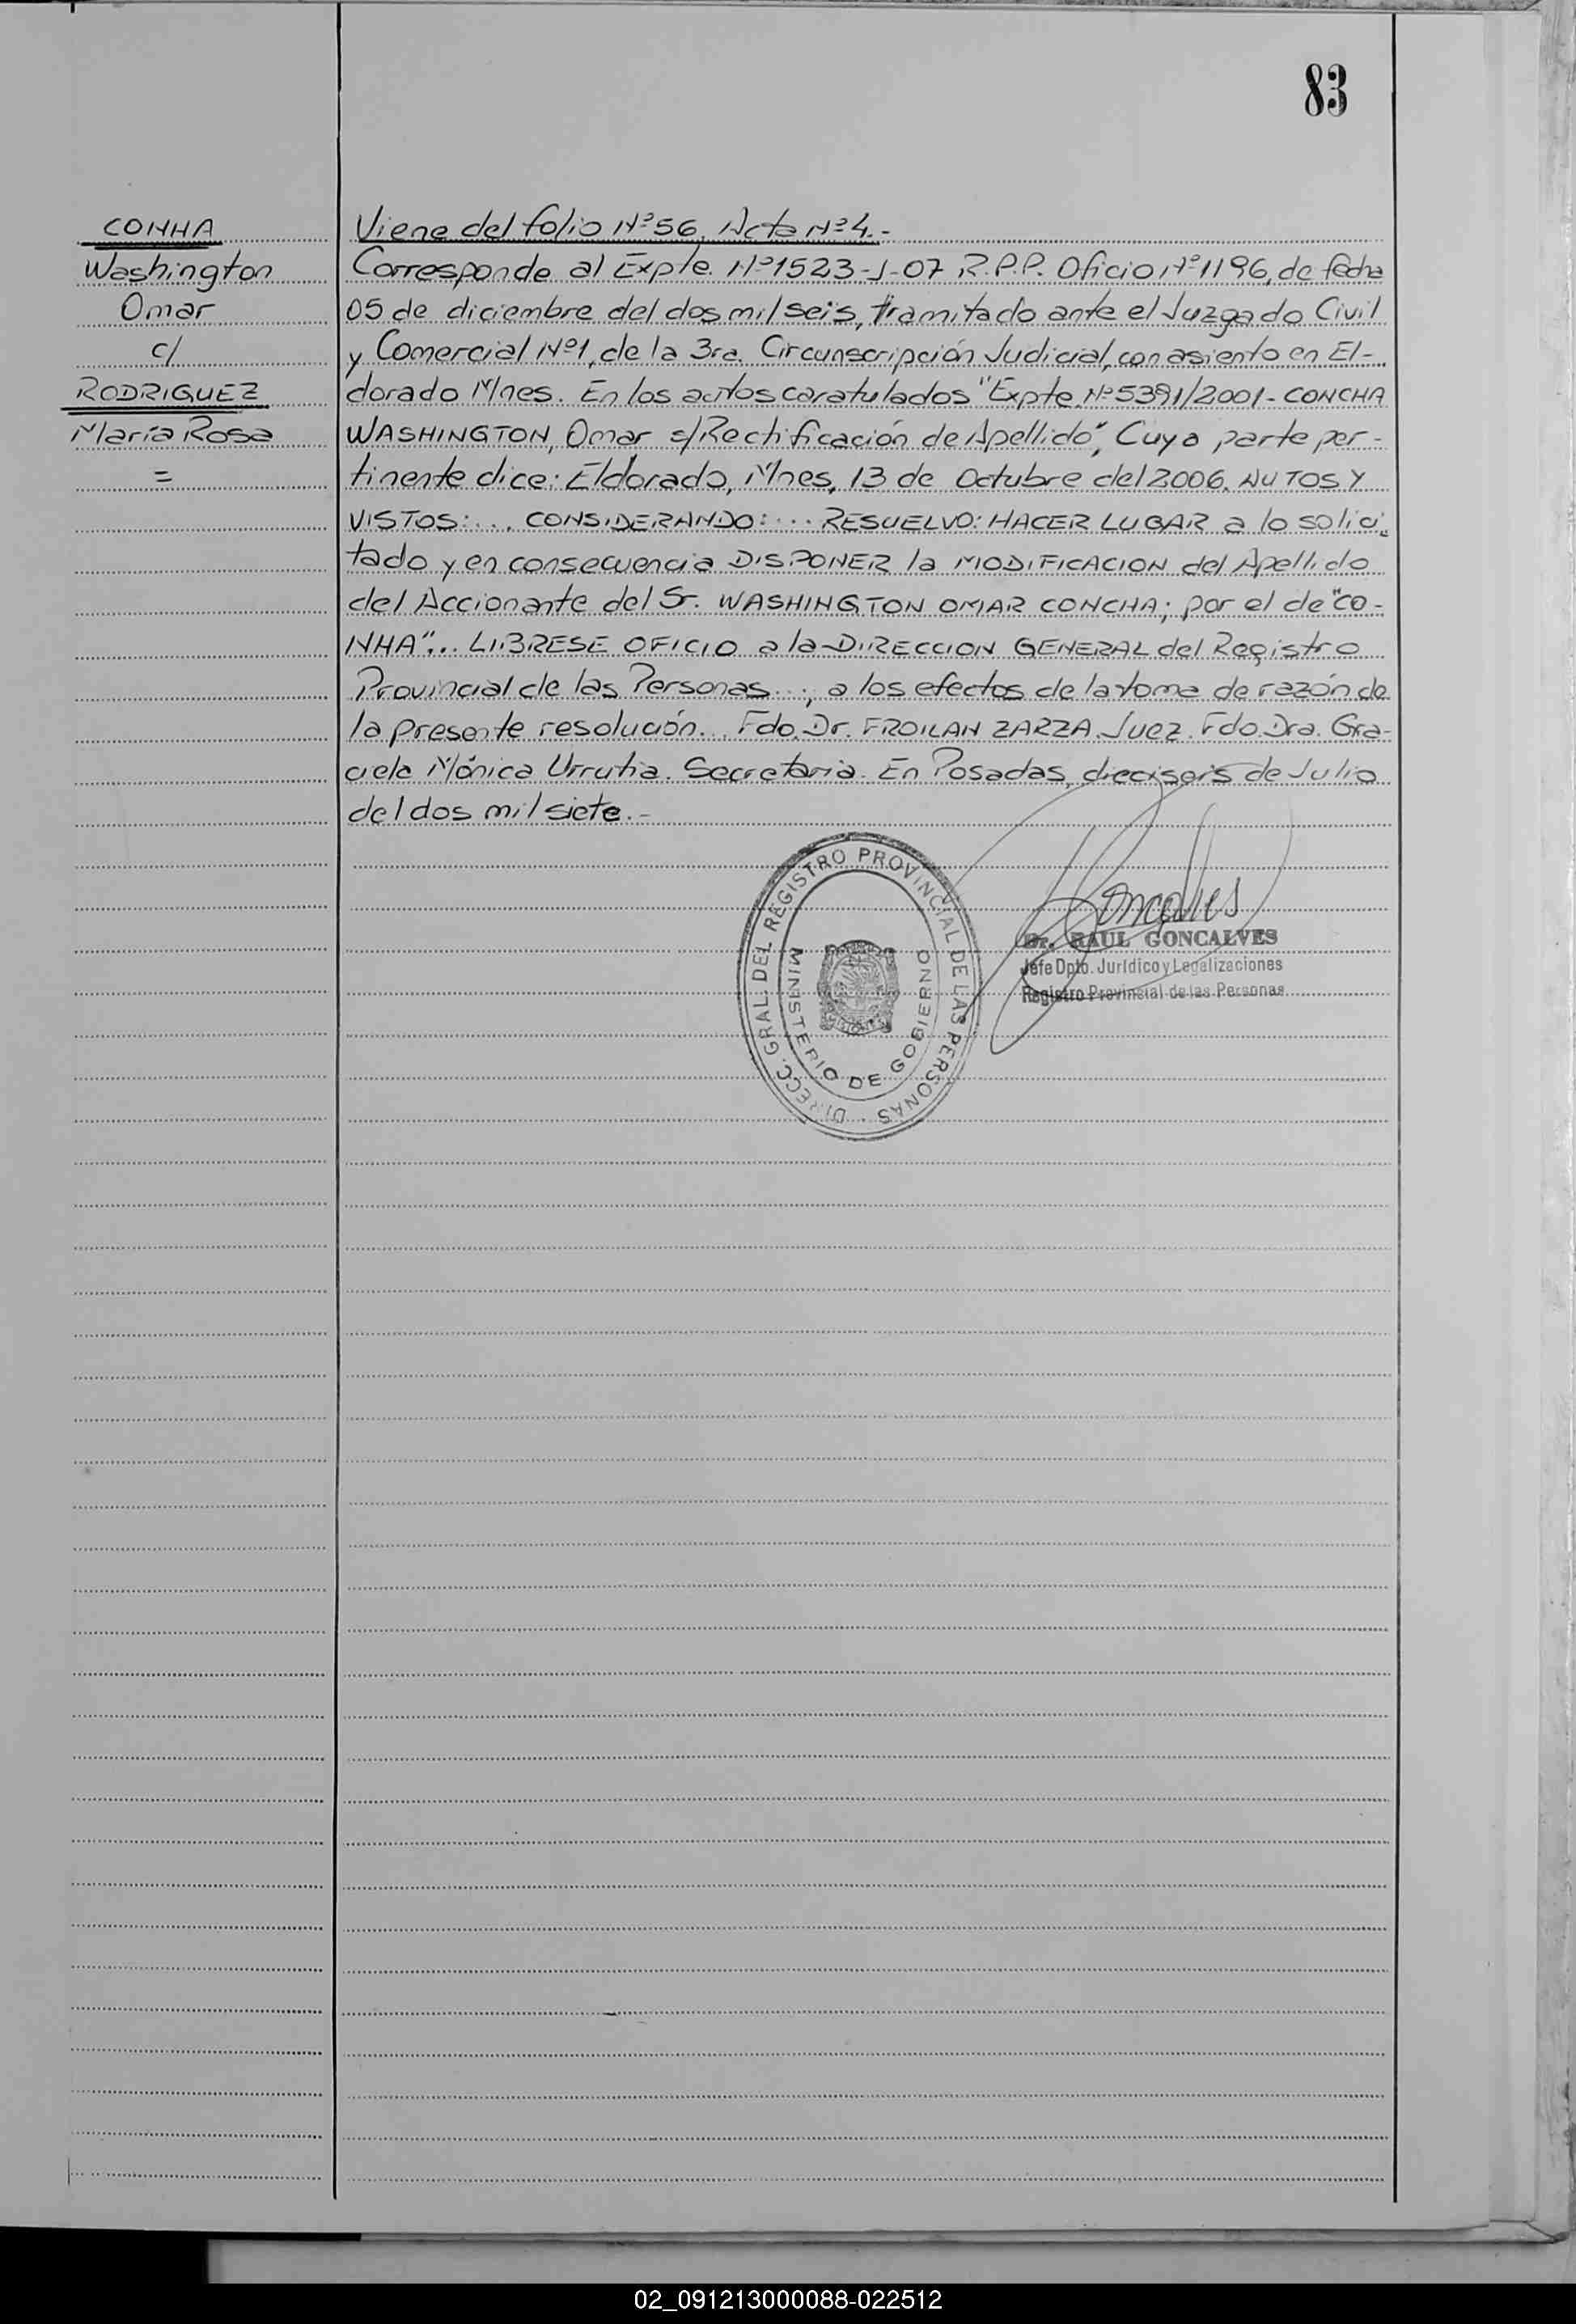 83
CONHA
Washington
Omar
c/
RODRIGUEZ
María Rosa
=
Viene del folio Nº 56. Acta Nº 4.-
Corresponde al Expte. Nº 1523-J-07 R.P.P. Oficio Nº 1196, de fecha
05 de diciembre del dos mil seis, tramitado ante el Juzgado Civil
y Comercial Nº1, de la 3ra. Circunscripción Judicial, con asiento en El-
dorado Mnes. En los autos caratulados "Expte. Nº 5391/2001- CONCHA
WASHINGTON, Omar s/Rectificación de Apellido", Cuya parte per-
tinente dice: Eldorado, Mnes, 13 de Octubre del 2006. AUTOS Y
VISTOS:... CONSIDERANDO:... RESUELVO: HACER LUGAR a lo solici-
tado y en consecuencia DISPONER la MODIFICACION del Apellido
del Accionante del Sr. WASHINGTON OMAR CONCHA; por el de "CO-
NHA"... LIBRESE OFICIO a la DIRECCION GENERAL del Registro
Provincial de las Personas..., a los efectos de la toma de razón de
la presente resolución... Fdo. Dr. FROILAN ZARZA. Juez. Fdo. Dra. Gra-
ciela Mónica Urrutia. Secretaria. En Posadas, dieciseis de Julio
del dos mil siete.-
DIRECC. GRAL. DEL REGISTRO PROVINCIAL DE LAS PERSONAS
MINISTERIO DE GOBIERNO
MISIONES
Goncalves
Dr. RAUL GONCALVES
Jefe Dpto. Jurídico y Legalizaciones
Registro Provincial de las Personas
02_091213000088-022512